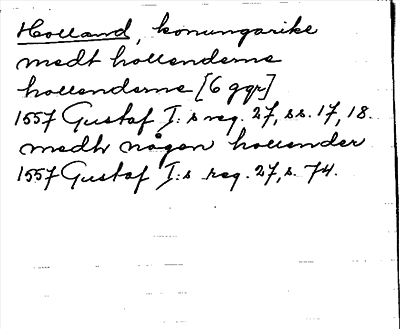 Holland, konungarike
medt hollenderne
hollenderne [6 ggr]
1557 Gustaf I:s reg. 27, ss. 17, 18.
medhr någon hollender
1557 Gustaf I:s reg. 27, s. 74.